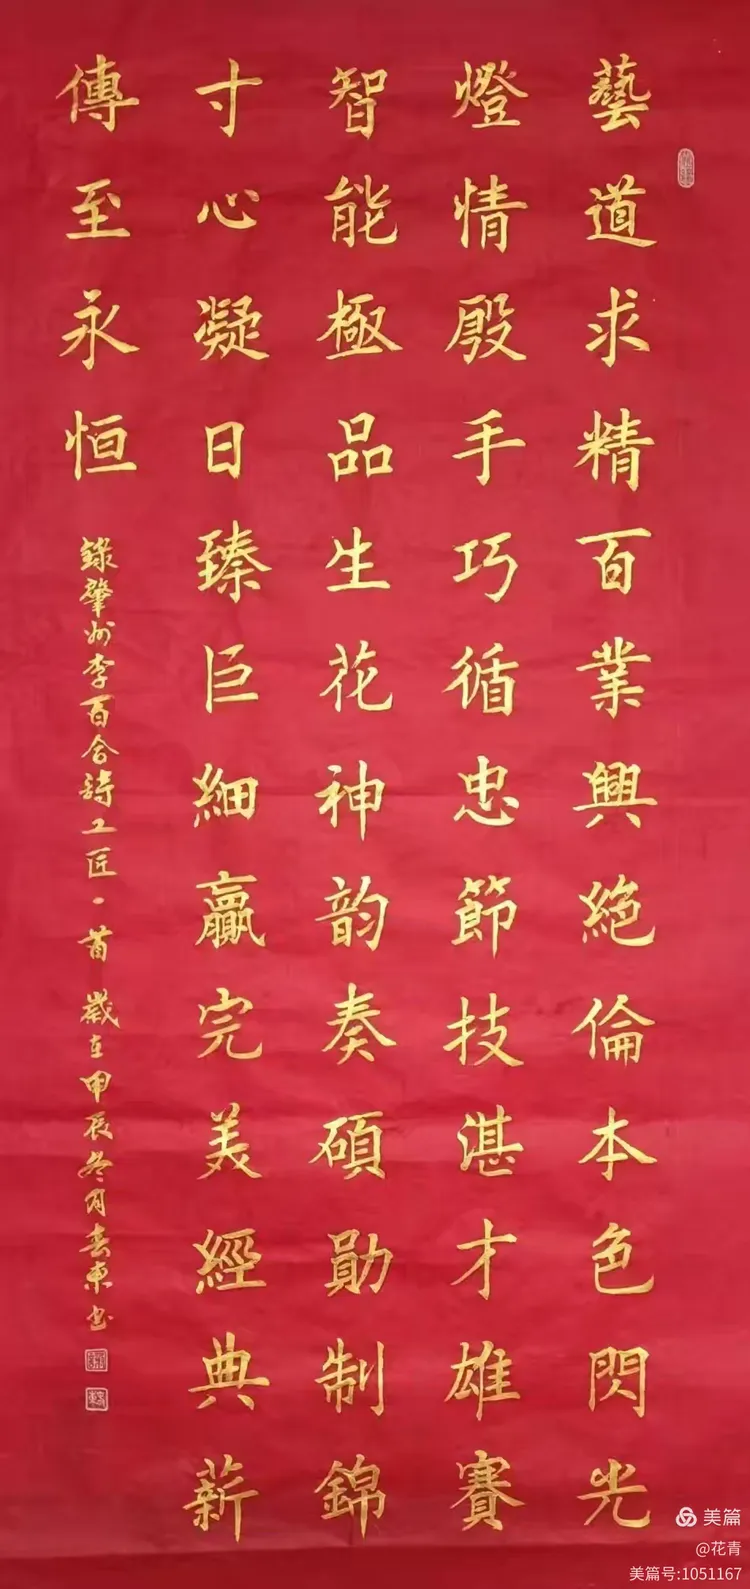 藝道求精百業興絕倫本色閃光
燈情殷手巧循忠節技湛才雄賽
智能極品生花神韵奏碩勛制錦
寸心凝日臻巨細贏完美經典薪
傳至永恒
錄肇州李百合詩工匠一首 歲在甲辰冬月春東书
美篇
@花青
美篇号:1051167